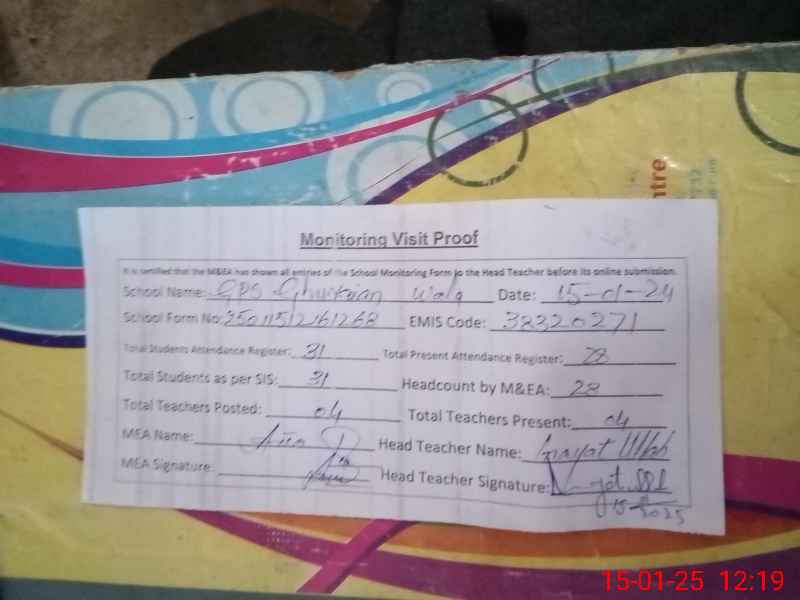 ntre
Monitoring Visit Proof
It is certified that the M&EA has shown all entries of the School Monitoring Form to the Head Teacher before its online submission.
School Name: GPS wala Date: 15-01-24
School Form No: EMIS Code: 38320271
Total Students Attendance Register: 31 Total Present Attendance Register: 28
Total Students as per SIS: 31 Headcount by M&EA: 28
Total Teachers Posted: 04 Total Teachers Present: 04
MEA Name: Head Teacher Name: Inayat Ullah
MEA Signature: Head Teacher Signature:
15-1-2025
15-01-25 12:19